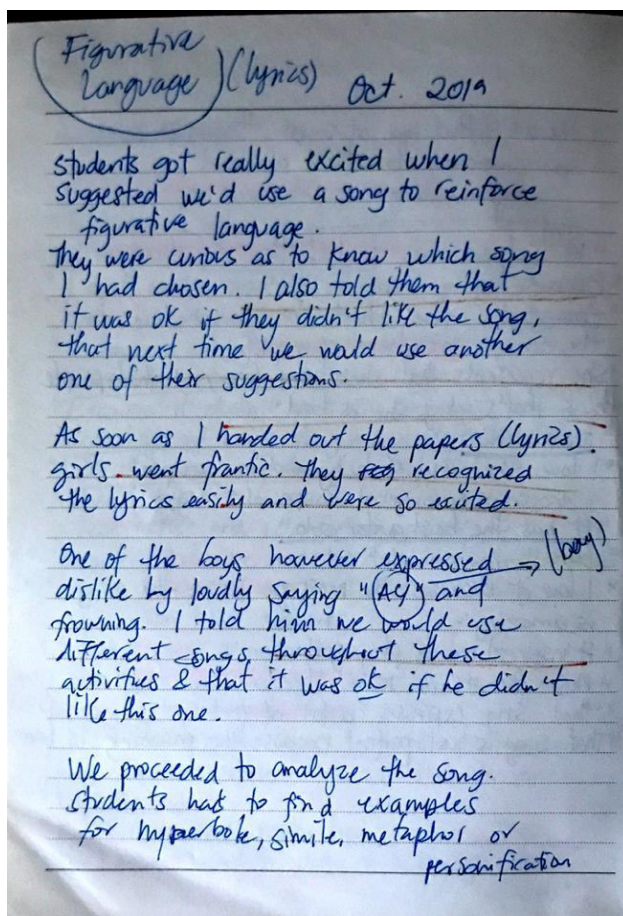 Figurative
Language (lyrics) Oct. 2019
Students got really excited when I
suggested we'd use a song to reinforce
figurative language.
They were curious as to know which song
I had chosen. I also told them that
it was ok if they didn't like the song,
that next time we would use another
one of their suggestions.
As soon as I handed out the papers (lyrics).
girls went frantic. They recognized
the lyrics easily and were so excited.
One of the boys however expressed → (boy)
dislike by loudly saying "Ay" and
frowning. I told him we would use
different songs throughout these
activities & that it was ok if he didn't
like this one.
We proceeded to analyze the song.
Students had to find examples
for hyperbole, simile, metaphor or
personification